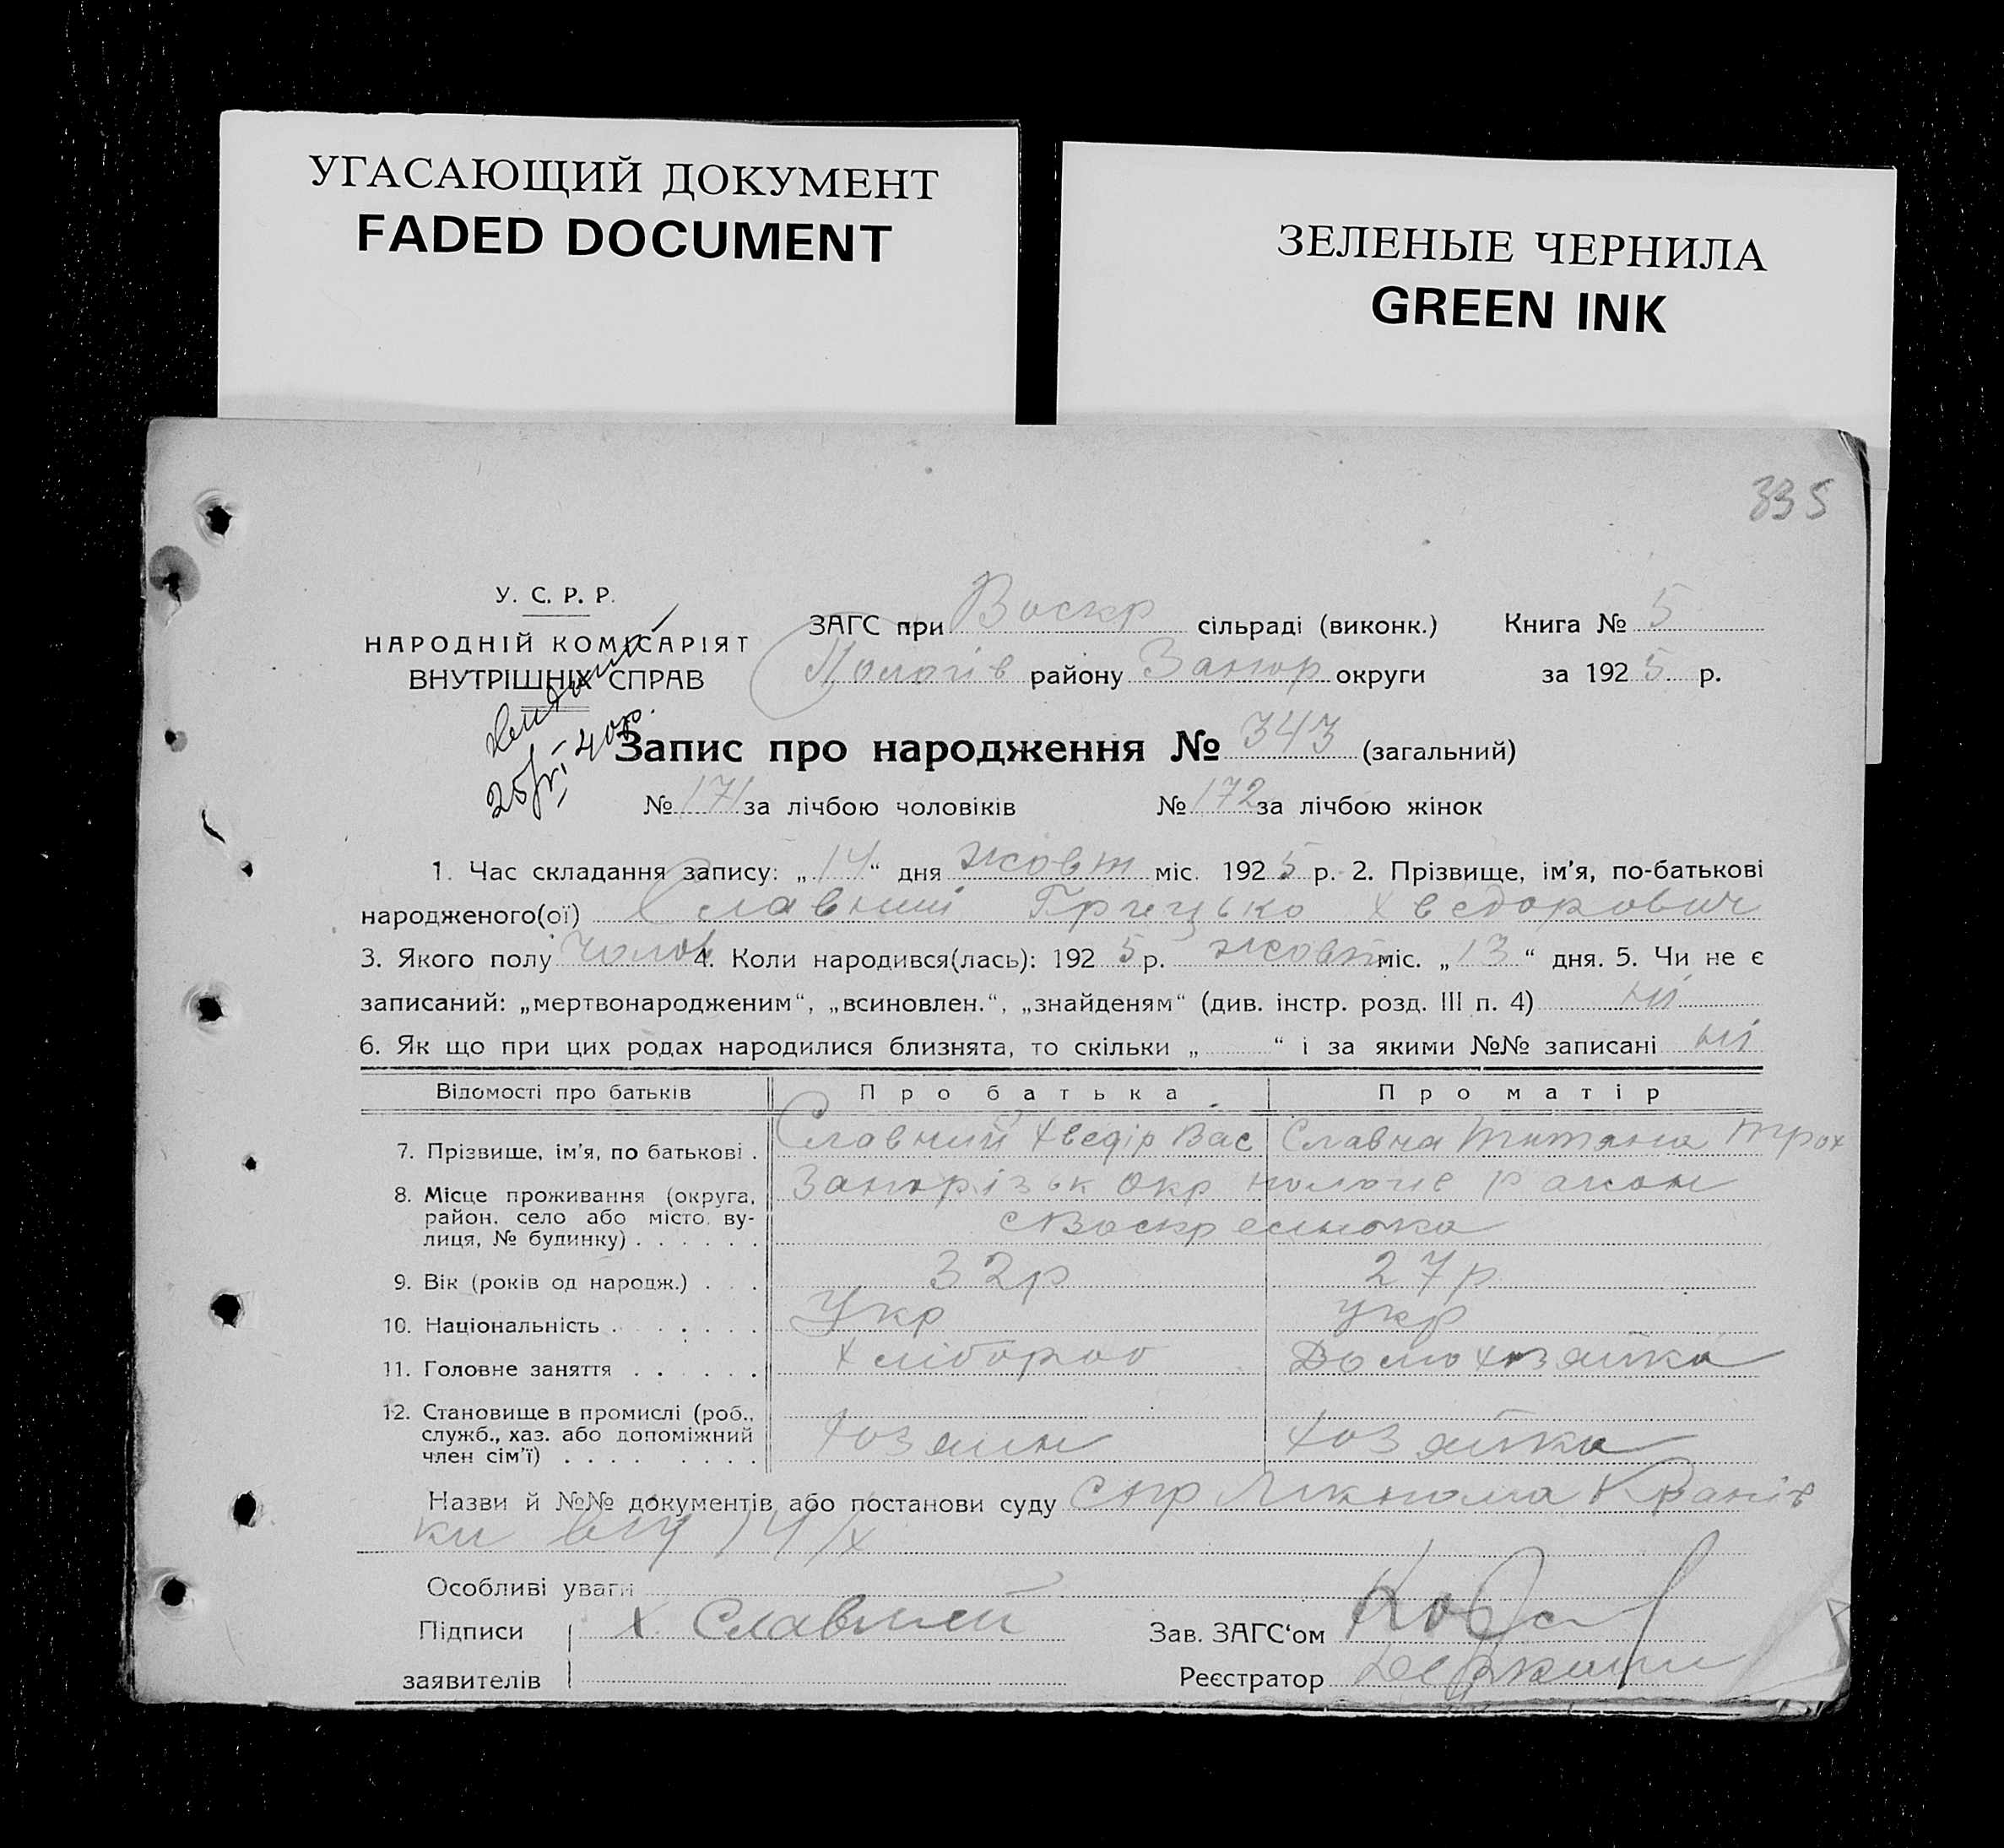 УГАСАЮЩИЙ ДОКУМЕНТ
FADED DOCUMENT
ЗЕЛЕНЫЕ ЧЕРНИЛА
GREEN INK
335
У. С. Р. Р.
НАРОДНІЙ КОМІСАРІЯТ
ВНУТРІШНІХ СПРАВ
ЗАГС при Воскр сільраді (виконк.) Книга № 5
Пологів району Запор округи за 1925 р.
Запис про народження № 343 (загальний)
№ 171 за лічбою чоловіків № 172 за лічбою жінок
1. Час складання запису: „14“ дня жовт міс. 1925 р. 2. Прізвище, ім’я, по-батькові
народженого(ої) Славний Грицько Хведорович
3. Якого полу чолов 4. Коли народився(лась): 1925 р. жовт міс. „13“ дня. 5. Чи не є
записаний: „мертвонародженим“, „всиновлен.“, „знайденям“ (див. інстр. розд. III п. 4) ні
6. Як що при цих родах народилися близнята, то скільки „ “ і за якими №№ записані ні
Відомості про батьків Про батька Про матір
7. Прізвище, ім’я, по батькові . Славний Хведір Вас Славна Титяна Трох
8. Місце проживання (округа, район, село або місто, вулиця, № будинку) . . . . . . Запорізьк Окр пологів район
с Воскресенка
9. Вік (років од народж.) . . . 32р 27р
10. Національність . . . . . . . Укр укр
11. Головне заняття . . . . . . Хлібороб Домохозяйка
12. Становище в промислі (роб., служб., хаз. або допоміжний член сім’ї) . . . . . . . . Хозяин Хозяйка
Назви й №№ документів або постанови суду спр
14/X
Особливі уваги
Підписи Х Славний Зав. ЗАГС‘ом
заявителів Реєстратор